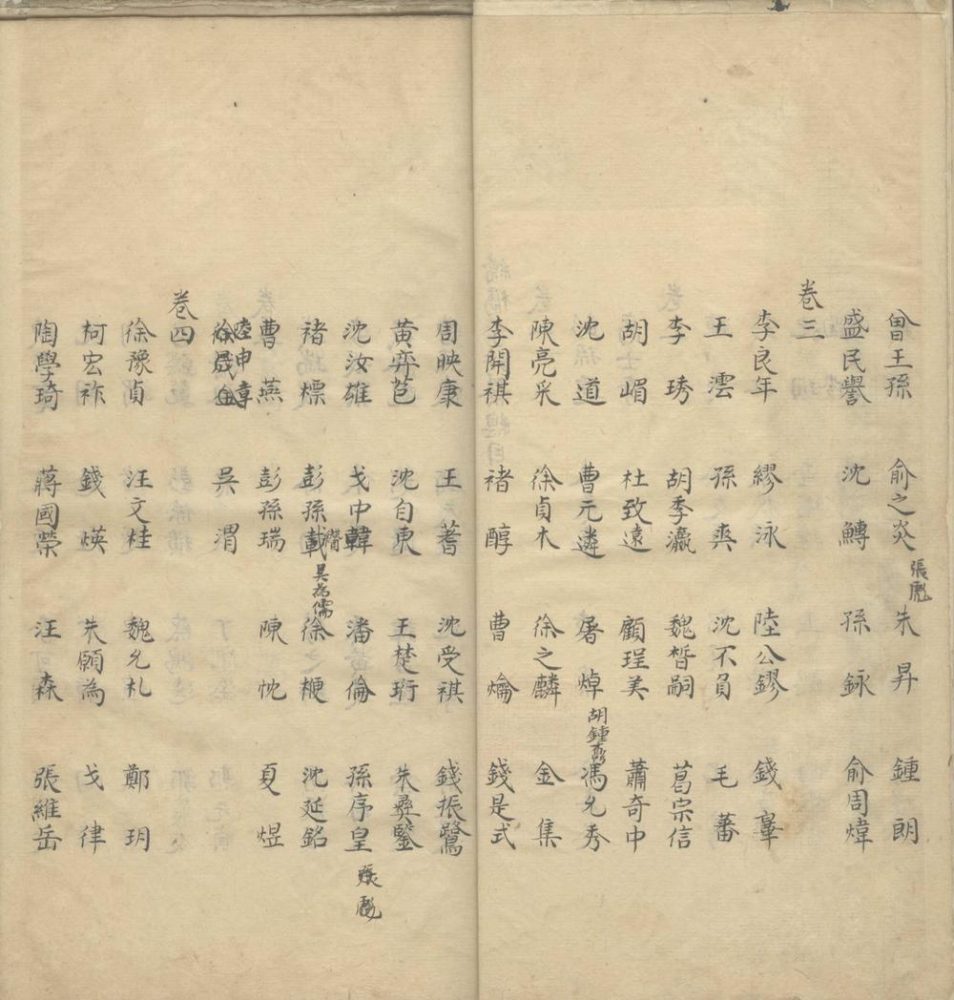 曾王孫 俞之炎 張彪 朱昇 鍾朗
盛民譽 沈鱄 孫鉽 俞周煒
卷三
李良年 繆泳 陸公鏐 錢
王澐 孫爽 沈不負 毛蕃
李琇 胡季瀛 魏晳嗣 葛宗信
胡嵋 杜致遠 顧珵美 蕭奇中
沈道 曹元 屠焯 胡鍾 馮允秀
陳亮采 徐貞木 徐之麟 金集
李開祺 褚醇 曹爚 錢是式
周映康 王蓍 沈受祺 錢振鷺
黃弈芑 沈自東 王楚珩 朱彞鑒
沈汝雄 戈中韓 潘倫 孫序皇 張彪
褚標 彭孫 吳為儒 徐楩 沈延銘
曹燕 彭孫瑞 陳忱 夏煜
陸申 徐晟 吳渭
卷四
徐豫貞 汪文桂 魏允札 鄭玥
柯宏祚 錢煐 朱願為 戈律
陶學琦 蔣國榮 汪森 張維岳